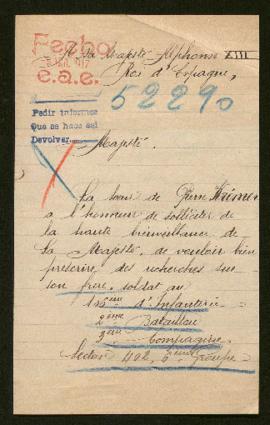 Fecho
A Sa Majesté Alphonse XIII
e.a.e.
Roi d'Espagne,
52290
Pedir informes
Que se hace así
Devolver
Majesté.
La sœur de Pierre
a l'honneur de solliciter de
la haute bienveillance de
Sa Majesté, de vouloir bien
prescrire des recherches sur
son frère, soldat au
d'Infanterie
2ème Bataillon
3ème Compagnie
Secteur 402, Groupe